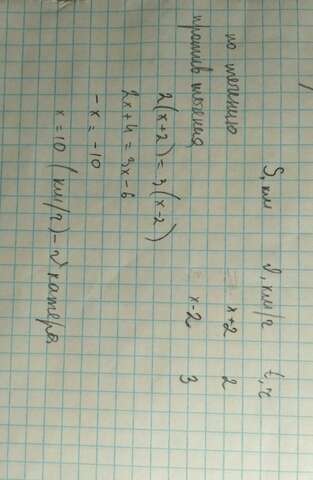 S, км V, км/г t, г
по течению x+2 2
против течения x-2 3
2(x+2)=3(x-2)
2x+4=3x-6
-x=-10
x=10 (км/г)-V катера